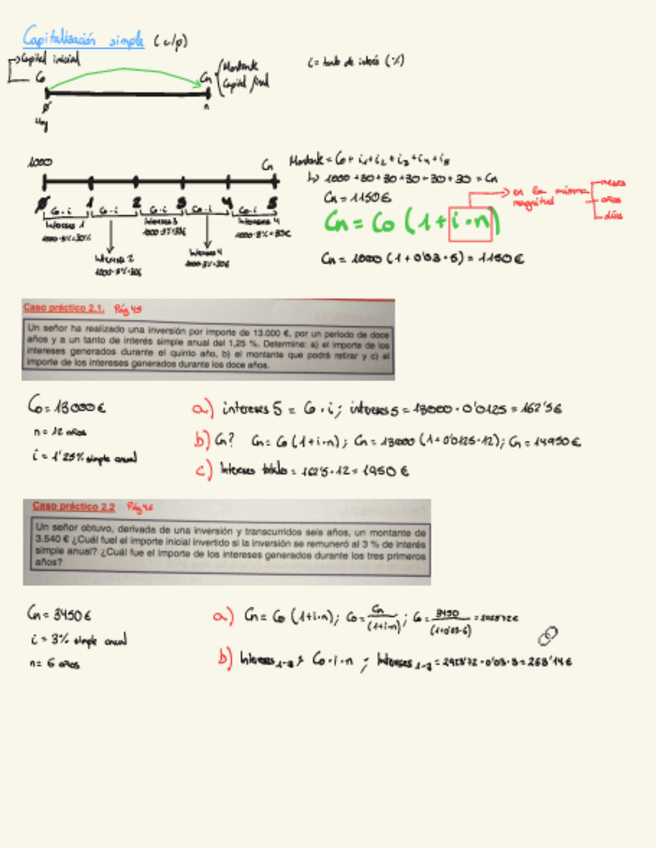 Capitalización simple (c/p)
Capital inicial
Co
Cn
Montante
Capital final
i = tanto de interés (%)
0
n
Hoy
1000
Cn
0 1 2 3 4 5
Co·i Co·i Co·i Co·i Co·i
Intereses 1
1000·3%=30€
Intereses 2
1000·3%=30€
Intereses 3
1000·3%=30€
Intereses 4
1000·3%=30€
Intereses 4
1000·3%=30€
Montante = Co + i1 + i2 + i3 + i4 + i5
1000 + 30 + 30 + 30 + 30 + 30 = Cn
Cn = 1150€
Cn = Co (1 + i·n)
en la misma magnitud
meses
años
días
Cn = 1000 (1 + 0'03 · 5) = 1150€
Caso práctico 2.1. Pág 45
Un señor ha realizado una inversión por importe de 13.000 €, por un período de doce
años y a un tanto de interés simple anual del 1,25 %. Determine: a) el importe de los
intereses generados durante el quinto año, b) el montante que podrá retirar y c) el
importe de los intereses generados durante los doce años.
Co = 13000€
n = 12 años
i = 1'25% simple anual
a) intereses 5 = Co · i ; intereses 5 = 13000 · 0'0125 = 162'5€
b) Cn? Cn = Co (1+i·n) ; Cn = 13000 (1+0'0125·12) ; Cn = 14950€
c) Intereses totales = 162'5 · 12 = 1950€
Caso práctico 2.2 Pág 46
Un señor obtuvo, derivada de una inversión y transcurridos seis años, un montante de
3.540 € ¿Cuál fuel el importe inicial invertido si la inversión se remuneró al 3 % de interés
simple anual? ¿Cuál fue el importe de los intereses generados durante los tres primeros
años?
Cn = 3450€
i = 3% simple anual
n = 6 años
a) Cn = Co (1+i·n) ; Co = Cn/(1+i·n) ; Co = 3450/(1+0'03·6) =
b) Intereses 1-3 = Co · i · n ; Intereses 1-3 = 2923'72 · 0'03 · 3 = 263'14€